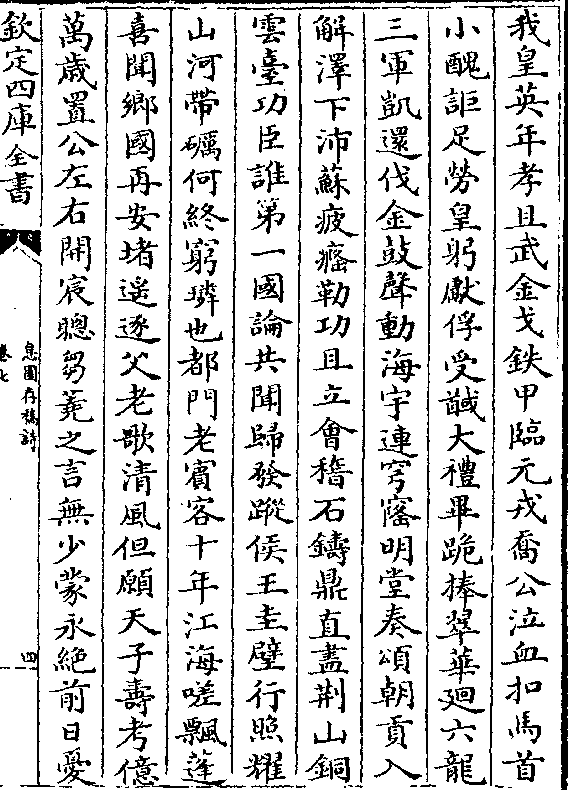 我皇英年孝且武金戈鉄甲臨元戎喬公泣血扣馬首
小醜詎足勞皇躬獻俘受馘大禮畢跪捧翠華廻六龍
三軍凱還伐金鼓聲動海宇連穹窿明堂奏頌朝貢入
解澤下沛蘇疲癃勒功且立會稽石鑄鼎直盡荆山銅
雲臺功臣誰第一國論共聞歸發蹤侯王圭璧行照耀
山河帶礪何終窮璘也都門老賓客十年江海嗟飄蓬
喜聞鄉國再安堵遥逐父老歌清風但願天子壽考億
萬歲置公左右開宸聰芻蕘之言無少蒙永絶前日憂
欽定四庫全書
息園存稿詩
卷七
四